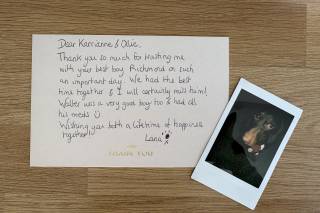 Dear Karrianne & Ollie,
Thank you so much for trusting me
with your best boy Richmond on such
an important day. We had the best
time together & I will certainly miss him!
Walter was a very good boy too & had all
his meds
Wishing you both a lifetime of happiness
together
Lana
THANK YOU